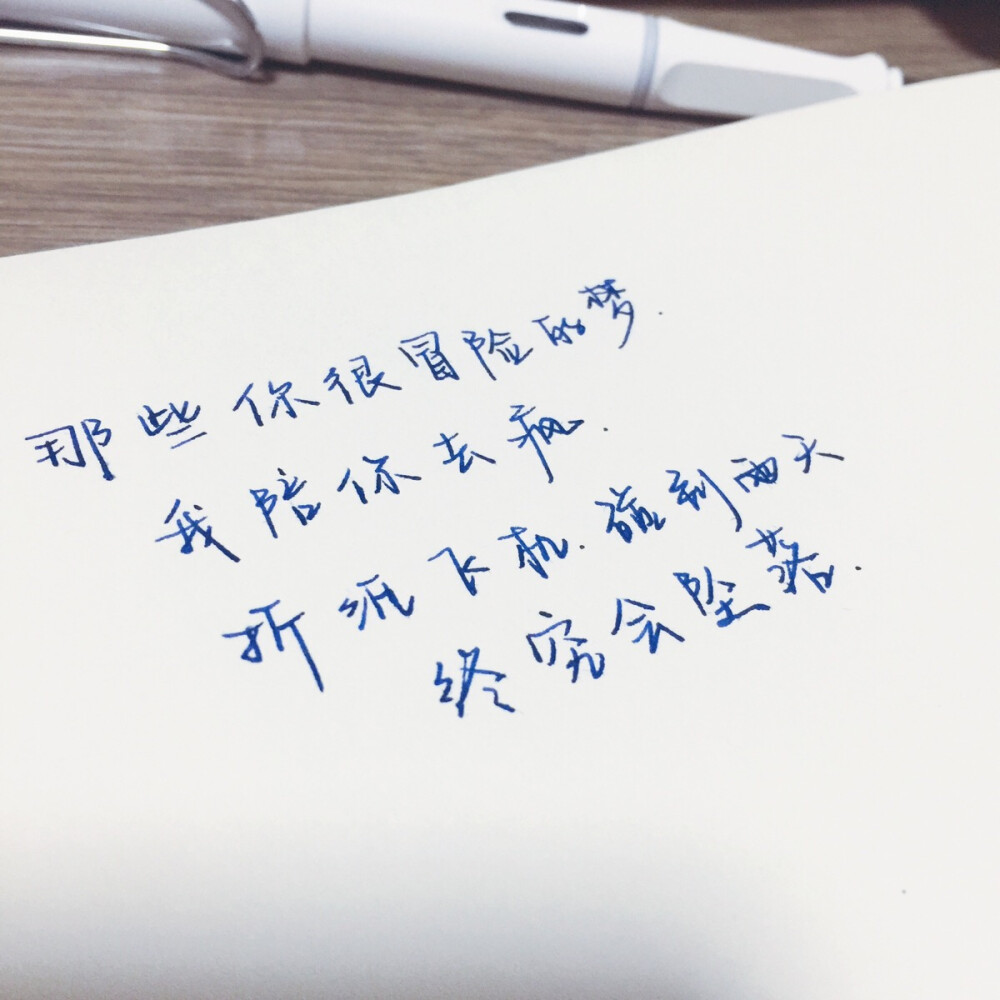 那些你很冒险的梦.
我陪你去疯.
折纸飞机.碰到雨天
终究会坠落.